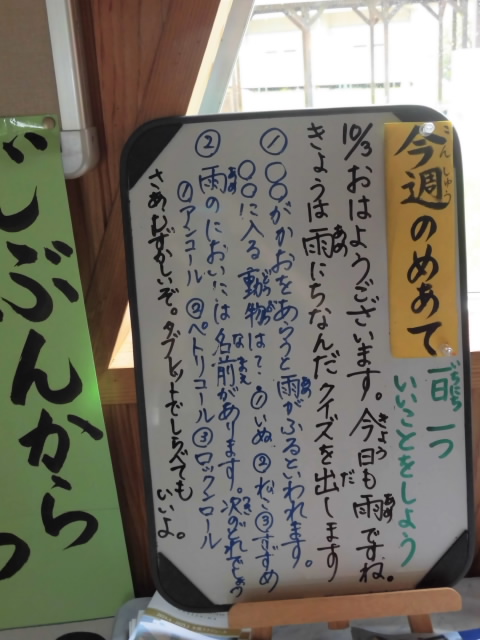 今週のめあて
一日一つ
いいことをしよう
10/3 おはようございます。今日も雨ですね。
きょうは雨にちなんだクイズを出します
① ○○がかおをあらうと雨がふるといわれます。
○○に入る動物は？①いぬ ②ねこ ③すずめ
② 雨のにおいには名前があります。次のどれでしょう
①アンコール ②ペトリコール ③ロックンロール
さあむずかしいぞ。タブレットでしらべても
いいよ。
じぶんから